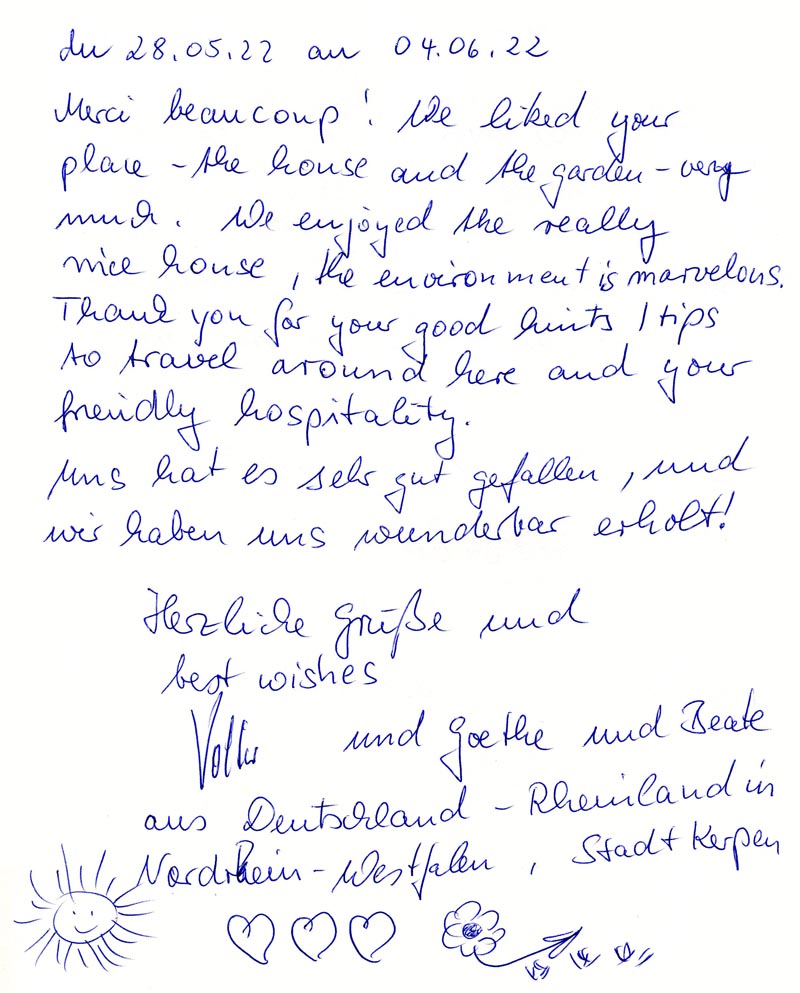 du 28.05.22 au 04.06.22
Merci beaucoup! We liked your
place - the house and the garden - very
much. We enjoyed the really
nice house, the environment is marvelous.
Thank you for your good hints / tips
to travel around here and your
freindly hospitality.
Uns hat es sehr gut gefallen, und
wir haben uns wunderbar erholt!
Herzliche Grüße und
best wishes
und Goethe und Beate
aus Deutschland - Rheinland in
Nordrhein-Westfalen, Stadt Kerpen